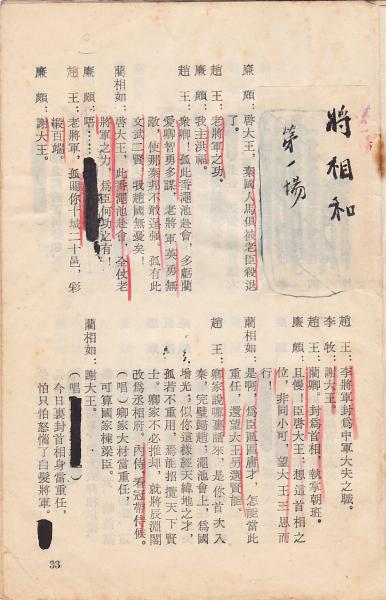 將相和
第一場
廉　頗：啓大王，秦國人馬俱被老臣殺退
了。
趙　王：老將軍之功。
廉　頗：我主洪福。
趙　王：衆卿！孤此番澠池赴會，多虧藺
愛卿智勇多謀，老將軍英勇無
敵，使那秦邦不敢逞强，孤有此
文武二賢，我趙國無憂矣！
藺相如：啓大王，此番澠池赴會，全仗老
將軍之功，爲臣何功之有！
廉　頗：唔……
趙　王：老將軍，孤賜你十城二十邑，彩
緞百端。
廉　頗：謝大王。
趙　王：李將軍封爲中軍大夫之職。
李　牧：謝大王。
趙　王：藺卿。封爲首相，執掌朝班。
廉　頗：且慢！臣啓大王：想這首相之
位，非同小可，望大王三思而
行！
藺相如：是啊，爲臣區區庸才，怎能當此
重任，還望大王另選賢能。
趙　王：卿家說哪裏話來，是你首次入
秦，完璧歸趙；澠池會上，爲國
增光；似你這樣經天緯地之才，
孤若不重用，焉能招攬天下賢
士。卿家不必推却，就將辰淵閣
改爲丞相府。內侍，看冠帶侍候。
（唱）卿家大材當重任，
可算國家棟梁臣。
藺相如：謝大王。
（唱）
今日裏封首相身當重任，
怕只怕惱了白髮將軍。
33